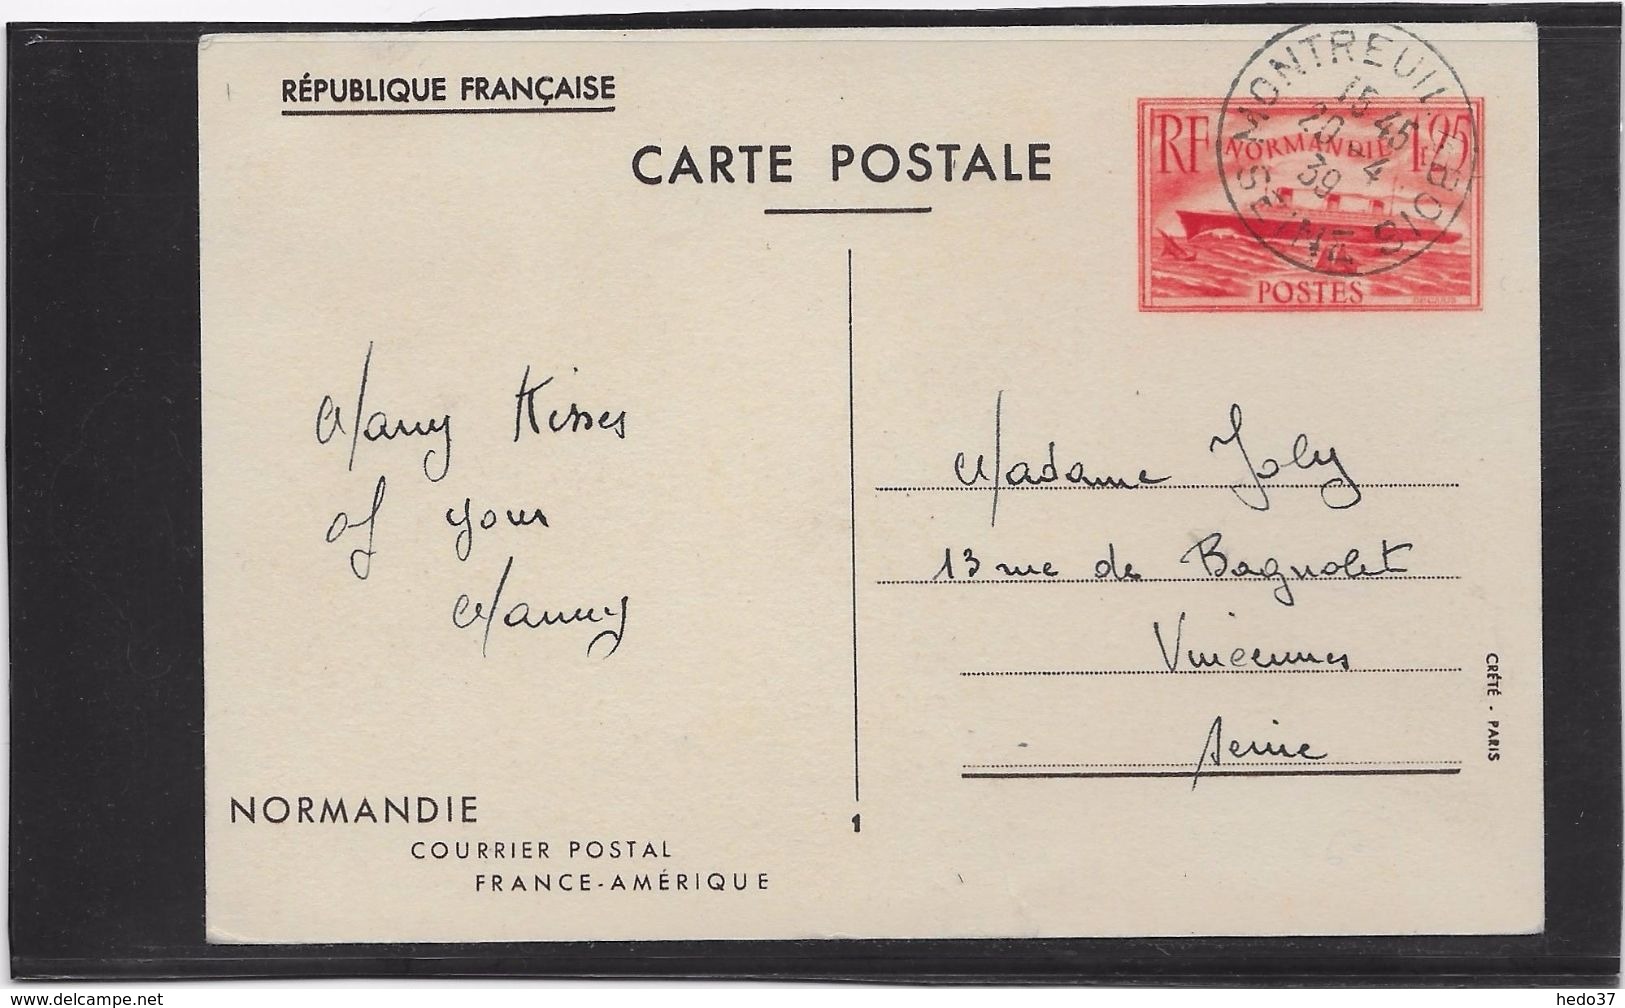 RÉPUBLIQUE FRANÇAISE
CARTE POSTALE
RF NORMANDIE 1F,95
POSTES
MONTREUIL S BOIS
SEINE
15 45
20 - 4
39
Many Kisses
of your
Manny
Madame Joly
13 rue de Bagnolet
Vincennes
Seine
NORMANDIE
COURRIER POSTAL
FRANCE-AMÉRIQUE
1
CRÉTÉ - PARIS
www.delcampe.net
hedo37